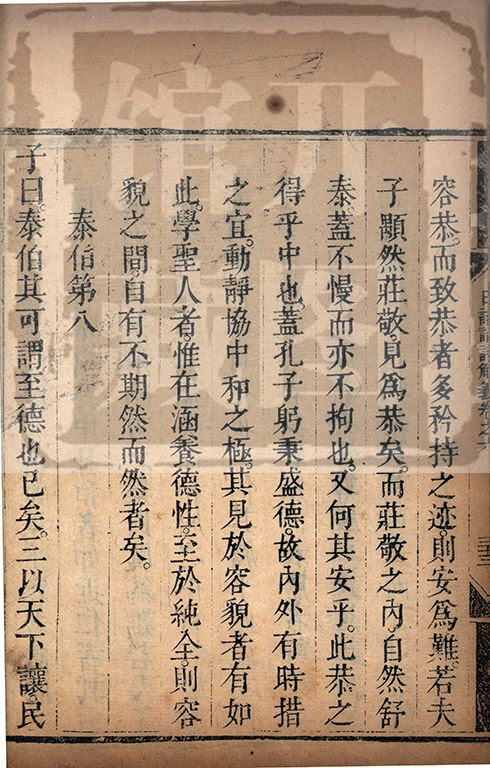 容恭。而致恭者多矜持之迹。則安爲難。若夫
子顒然莊敬。見爲恭矣。而莊敬之內。自然舒
泰。蓋不慢而亦不拘也。又何其安乎。此恭之
得乎中也。蓋孔子躬秉盛德。故內外有時措
之宜。動靜協中和之極。其見於容貌者有如
此。學聖人者。惟在涵養德性。至於純全。則容
貌之間。自有不期然而然者矣。
泰伯第八
子曰。泰伯其可謂至德也已矣。三以天下讓。民